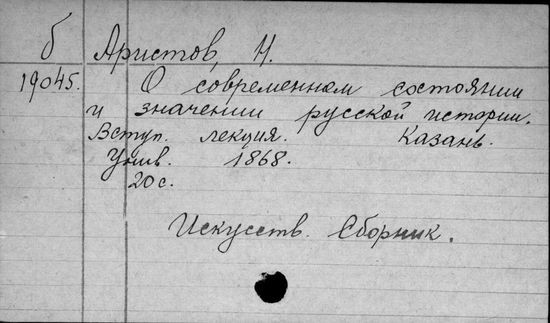 б Аристов, Н.
19045. О современном состоянии
и значении русской истории.
Вступ. лекция. Казань.
Унив. 1868.
20 с.
Искусств. Сборник.